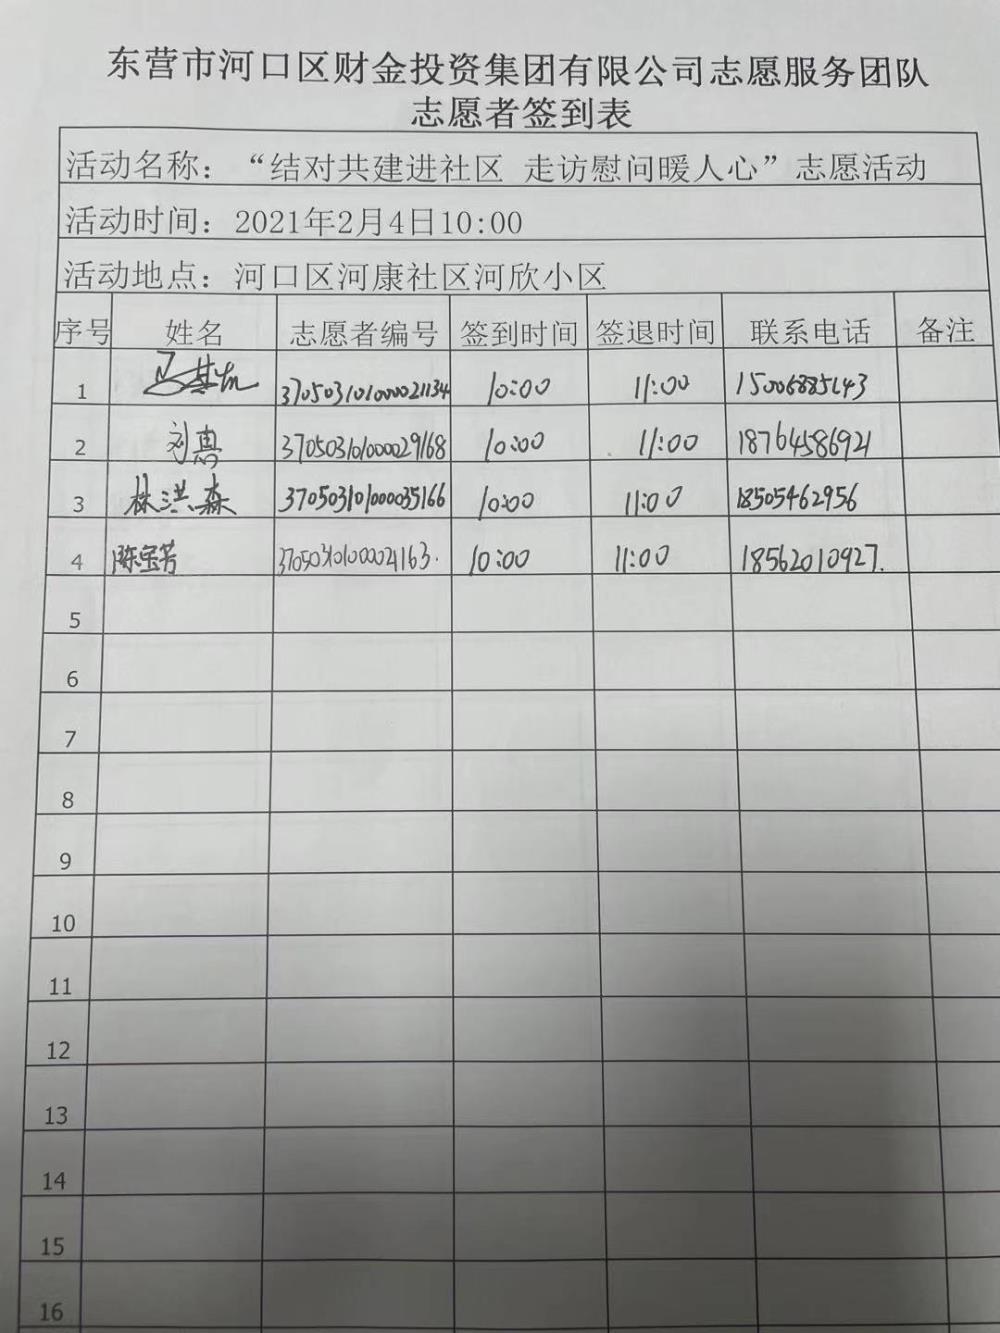 东营市河口区财金投资集团有限公司志愿服务团队
志愿者签到表
活动名称：“结对共建进社区 走访慰问暖人心”志愿活动
活动时间：2021年2月4日10:00
活动地点：河口区河康社区河欣小区
序号 姓名 志愿者编号 签到时间 签退时间 联系电话 备注
1 3705031010000021134 10:00 11:00
2 刘惠 3705031010000029168 10:00 11:00 18764586921
3 林洪森 3705031010000035166 10:00 11:00 18505462956
4 陈宝芳 3705031010000021163. 10:00 11:00 18562010927.
5
6
7
8
9
10
11
12
13
14
15
16